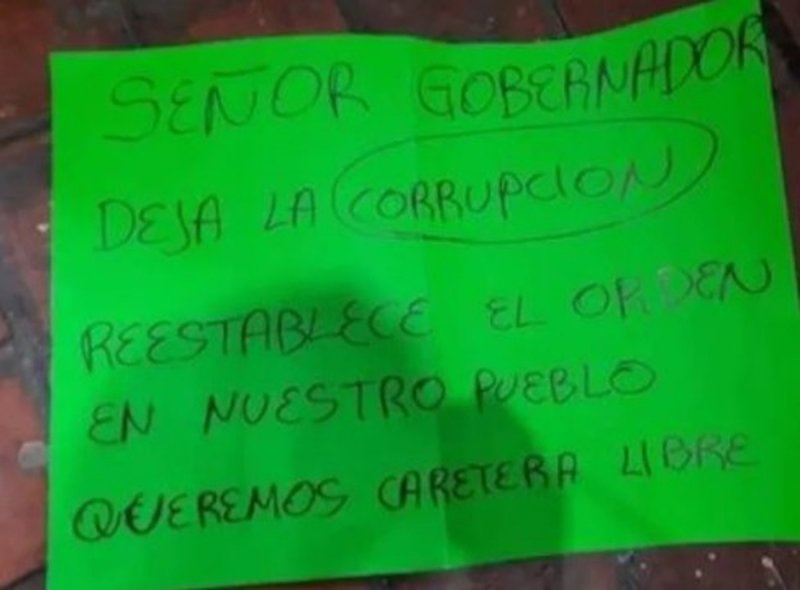 SEÑOR GOBERNADOR
DEJA LA CORRUPCION
REESTABLECE EL ORDEN
EN NUESTRO PUEBLO
QUEREMOS CARETERA LIBRE